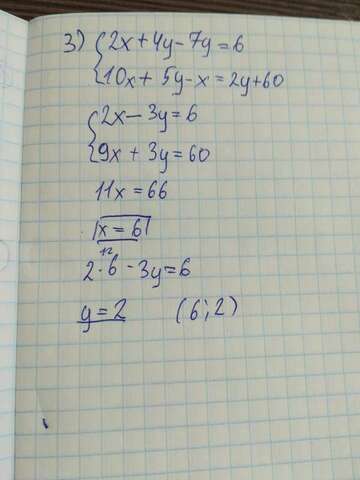 3) 2x+4y-7y=6
10x+5y-x=2y+60
2x-3y=6
9x+3y=60
11x=66
x=6
12
2·6-3y=6
y=2 (6;2)